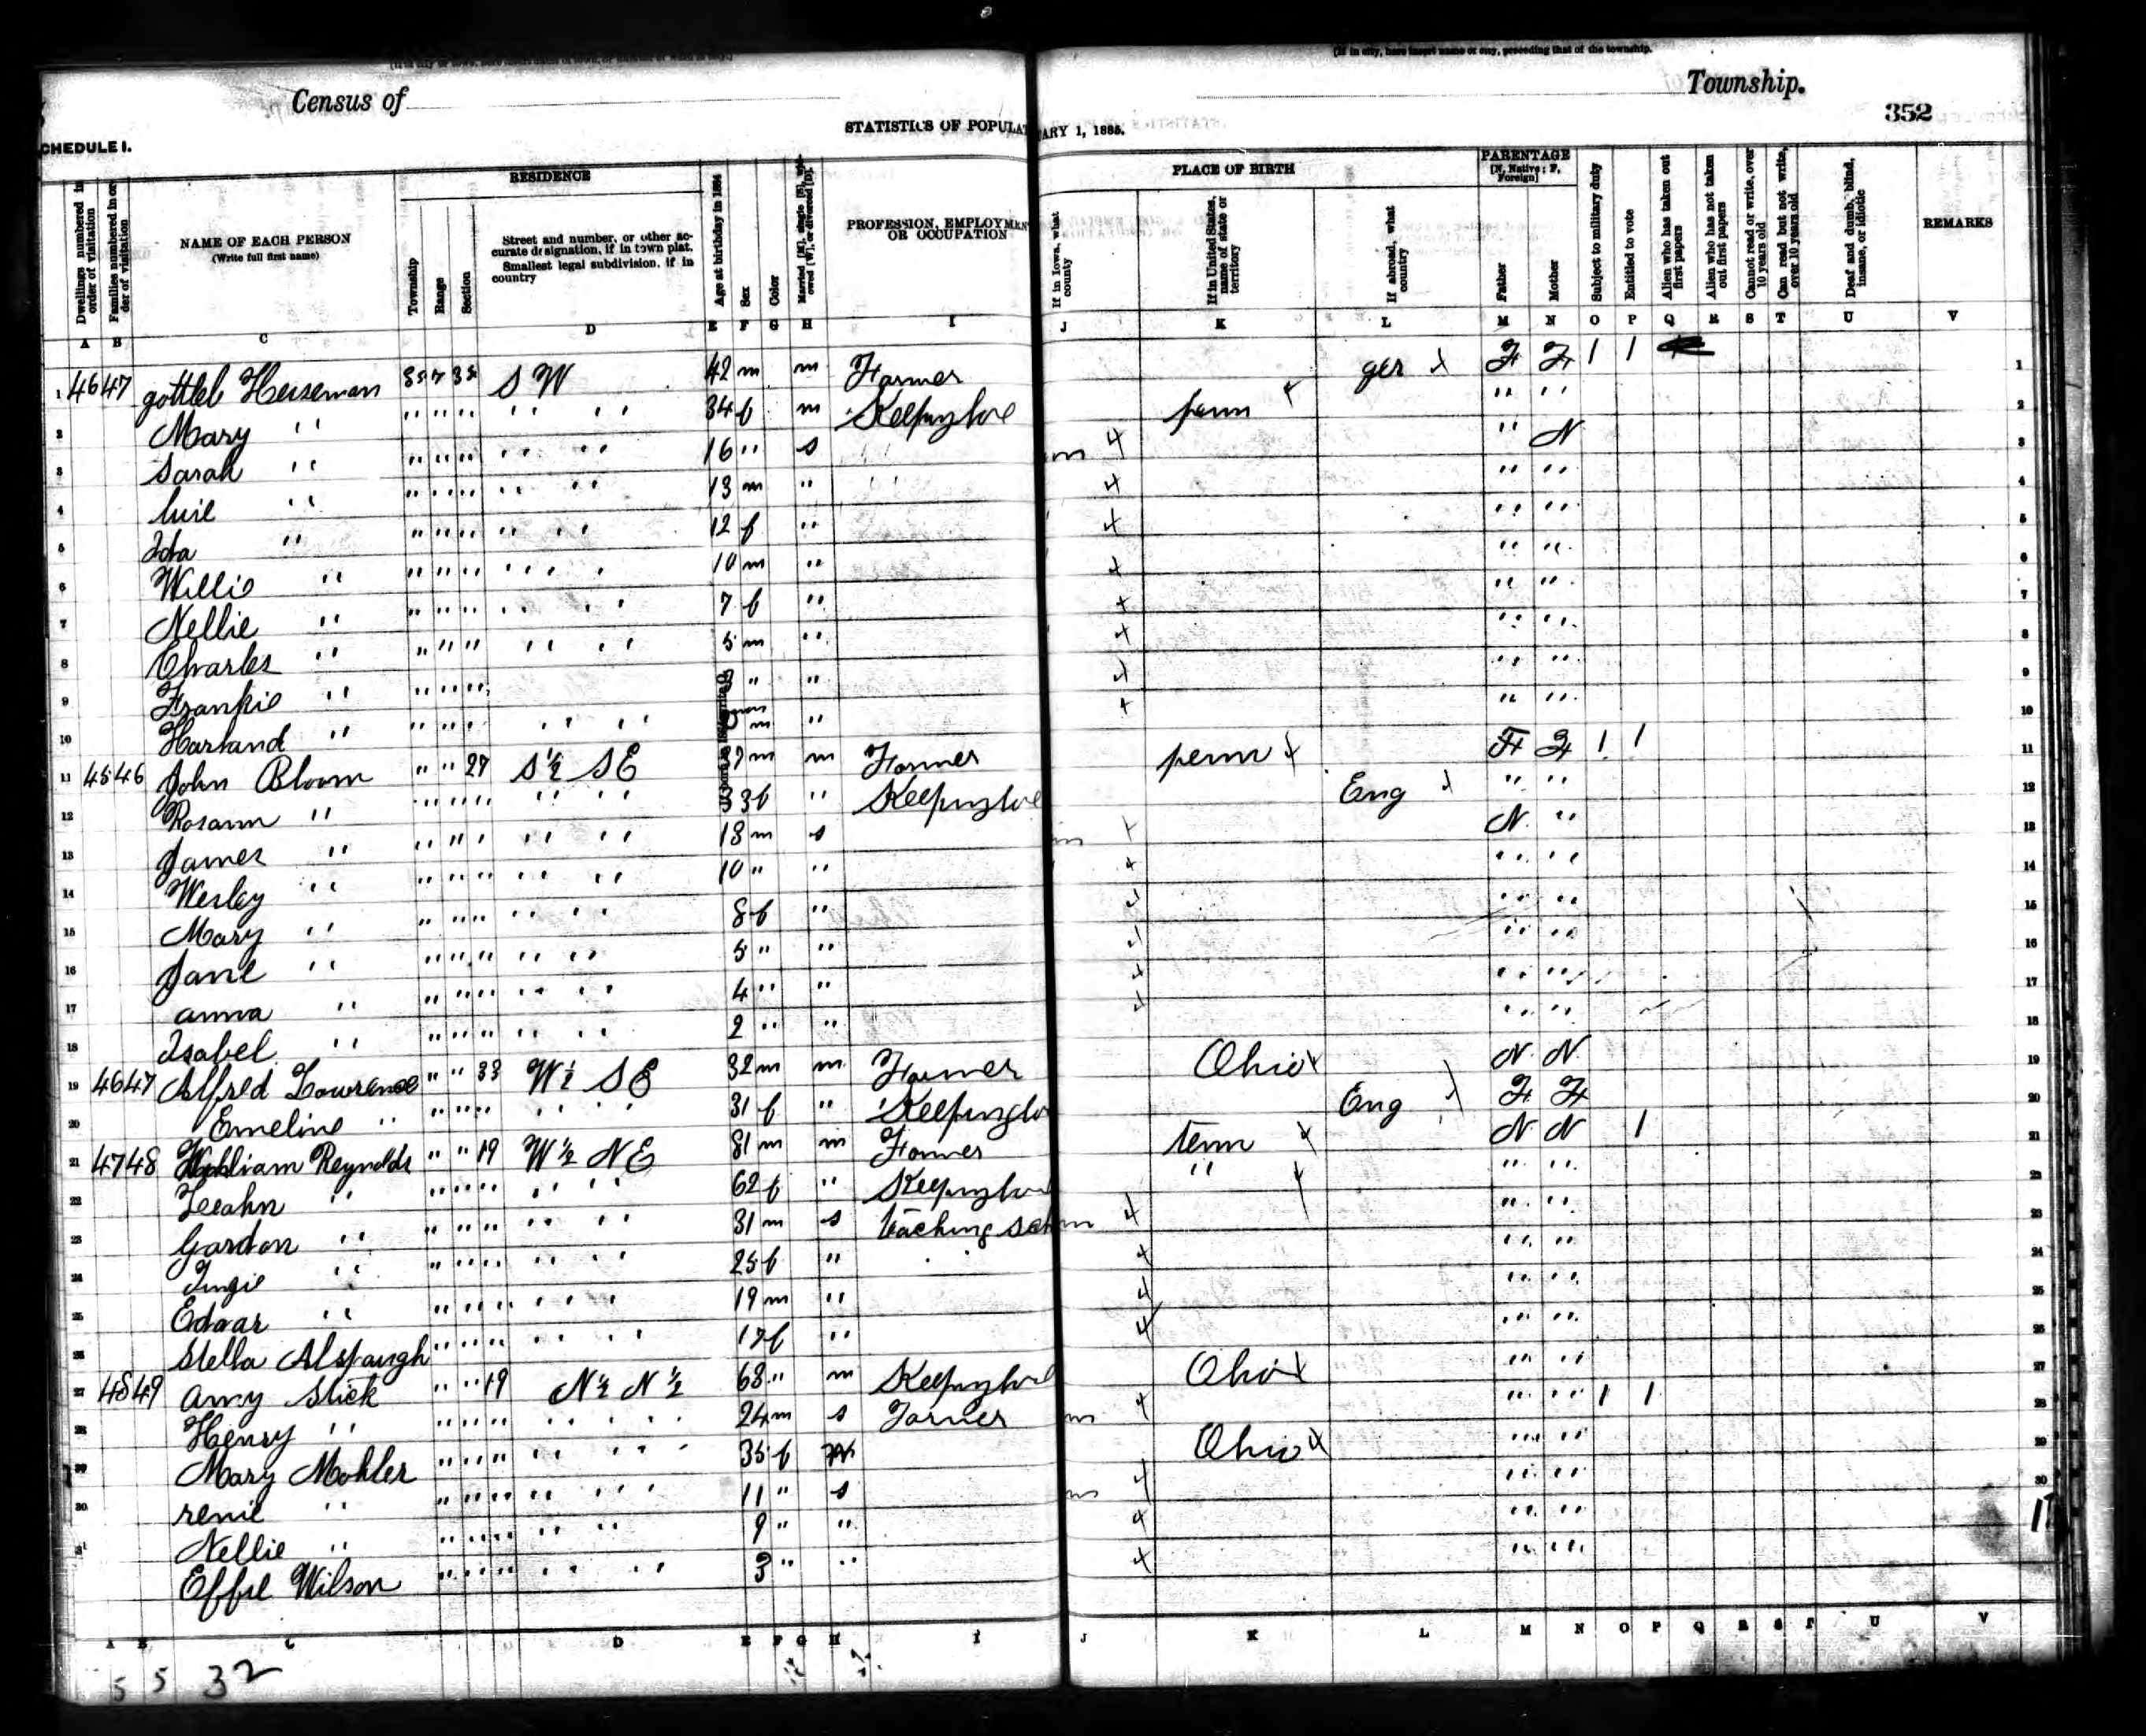 (If in city, here insert name or any, preceding that of the township.
Census of Township.
352
STATISTICS OF POPULA ARY 1, 1885.
CHEDULE I.
RESIDENCE PLACE OF BIRTH PARENTAGE
[N, Native; F, Foreign]
Dwellings numbered in order of visitation
Families numbered in order of visitation
NAME OF EACH PERSON
(Write full first name)
Township
Range
Section
Street and number, or other accurate designation, if in town plat. Smallest legal subdivision, if in country
Age at birthday in 1884
Sex
Color
Married [M], single [S], widowed [W], or divorced [D].
PROFESSION, EMPLOYMEN OR OCCUPATION
If in Iowa, what county
If in United States, name of state or territory
If abroad, what country
Father
Mother
Subject to military duty
Entitled to vote
Alien who has taken out first papers
Alien who has not taken out first papers
Cannot read or write, over 10 years old
Can read but not write, over 10 years old
Deaf and dumb, blind, insane, or idiotic
REMARKS
A B C D E F G H I J K L M N O P Q R S T U V
1 46 47 gottleb Heiseman 85 7 35 S W 42 m m Farmer ger F F 1 1 1
2 Mary " " " " " " 34 f m Keepinghoe penn " " 2
3 Sarah " " " " " " 16 " s m " N 3
4 " " " " " " 13 m " " " 4
5 Ida " " " " " " 12 f " " " 5
6 Willie " " " " " " 10 m " " " 6
7 Nellie " " " " " " 7 f " " " 7
8 Charles " " " " " " 5 m " " " 8
9 Frankie " " " " " " " " " 9
10 Harland " " " " " " m " " " 10
11 45 46 John Bloom " " 27 S½ SE 37 m m Farmer penn F F 1 1 11
12 Rosann " " " " " " 33 f " Keepinghoe Eng " " 12
13 James " " " " " " 18 m s m N " 13
14 Wesley " " " " " " 10 " " " " 14
15 Mary " " " " " " 8 f " " " 15
16 Jane " " " " " " 5 " " " " 16
17 anna " " " " " " 4 " " " " 17
18 Isabel " " " " " " 2 " " " " 18
19 46 47 Alfred Lowrence " " 33 W½ SE 32 m m Farmer Ohio N N 19
20 Emeline " " " " " " 31 f " Keepingho Eng F F 20
21 47 48 William Reynolds " " 19 W½ NE 81 m m Farmer tenn N N 1 21
22 " " " " " " 62 f " Keepinghou " " " 22
23 Gordon " " " " " " 31 m s teaching sch m " " 23
24 " " " " " " 25 f " " " 24
25 Edgar " " " " " " 19 m " " " 25
26 Stella Alspaugh " " " " " 17 f " " " 26
27 48 49 amy Slick " " 19 N½ N½ 68 " m Keepinghoe Ohio " " 27
28 Henry " " " " " " 24 m s Farmer m " " 1 1 28
29 Mary Mohler " " " " " 35 f Ohio " " 29
30 renie " " " " " " 11 " s m " " 30
Nellie " " " " " " 9 " " " "
Effie Wilson " " " " " 3 " " " "
A B C D E F G H I J K L M N O P Q R S T U V
5 5 32